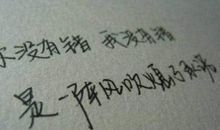 没有错 我没有错
是一阵风吹熄了承诺